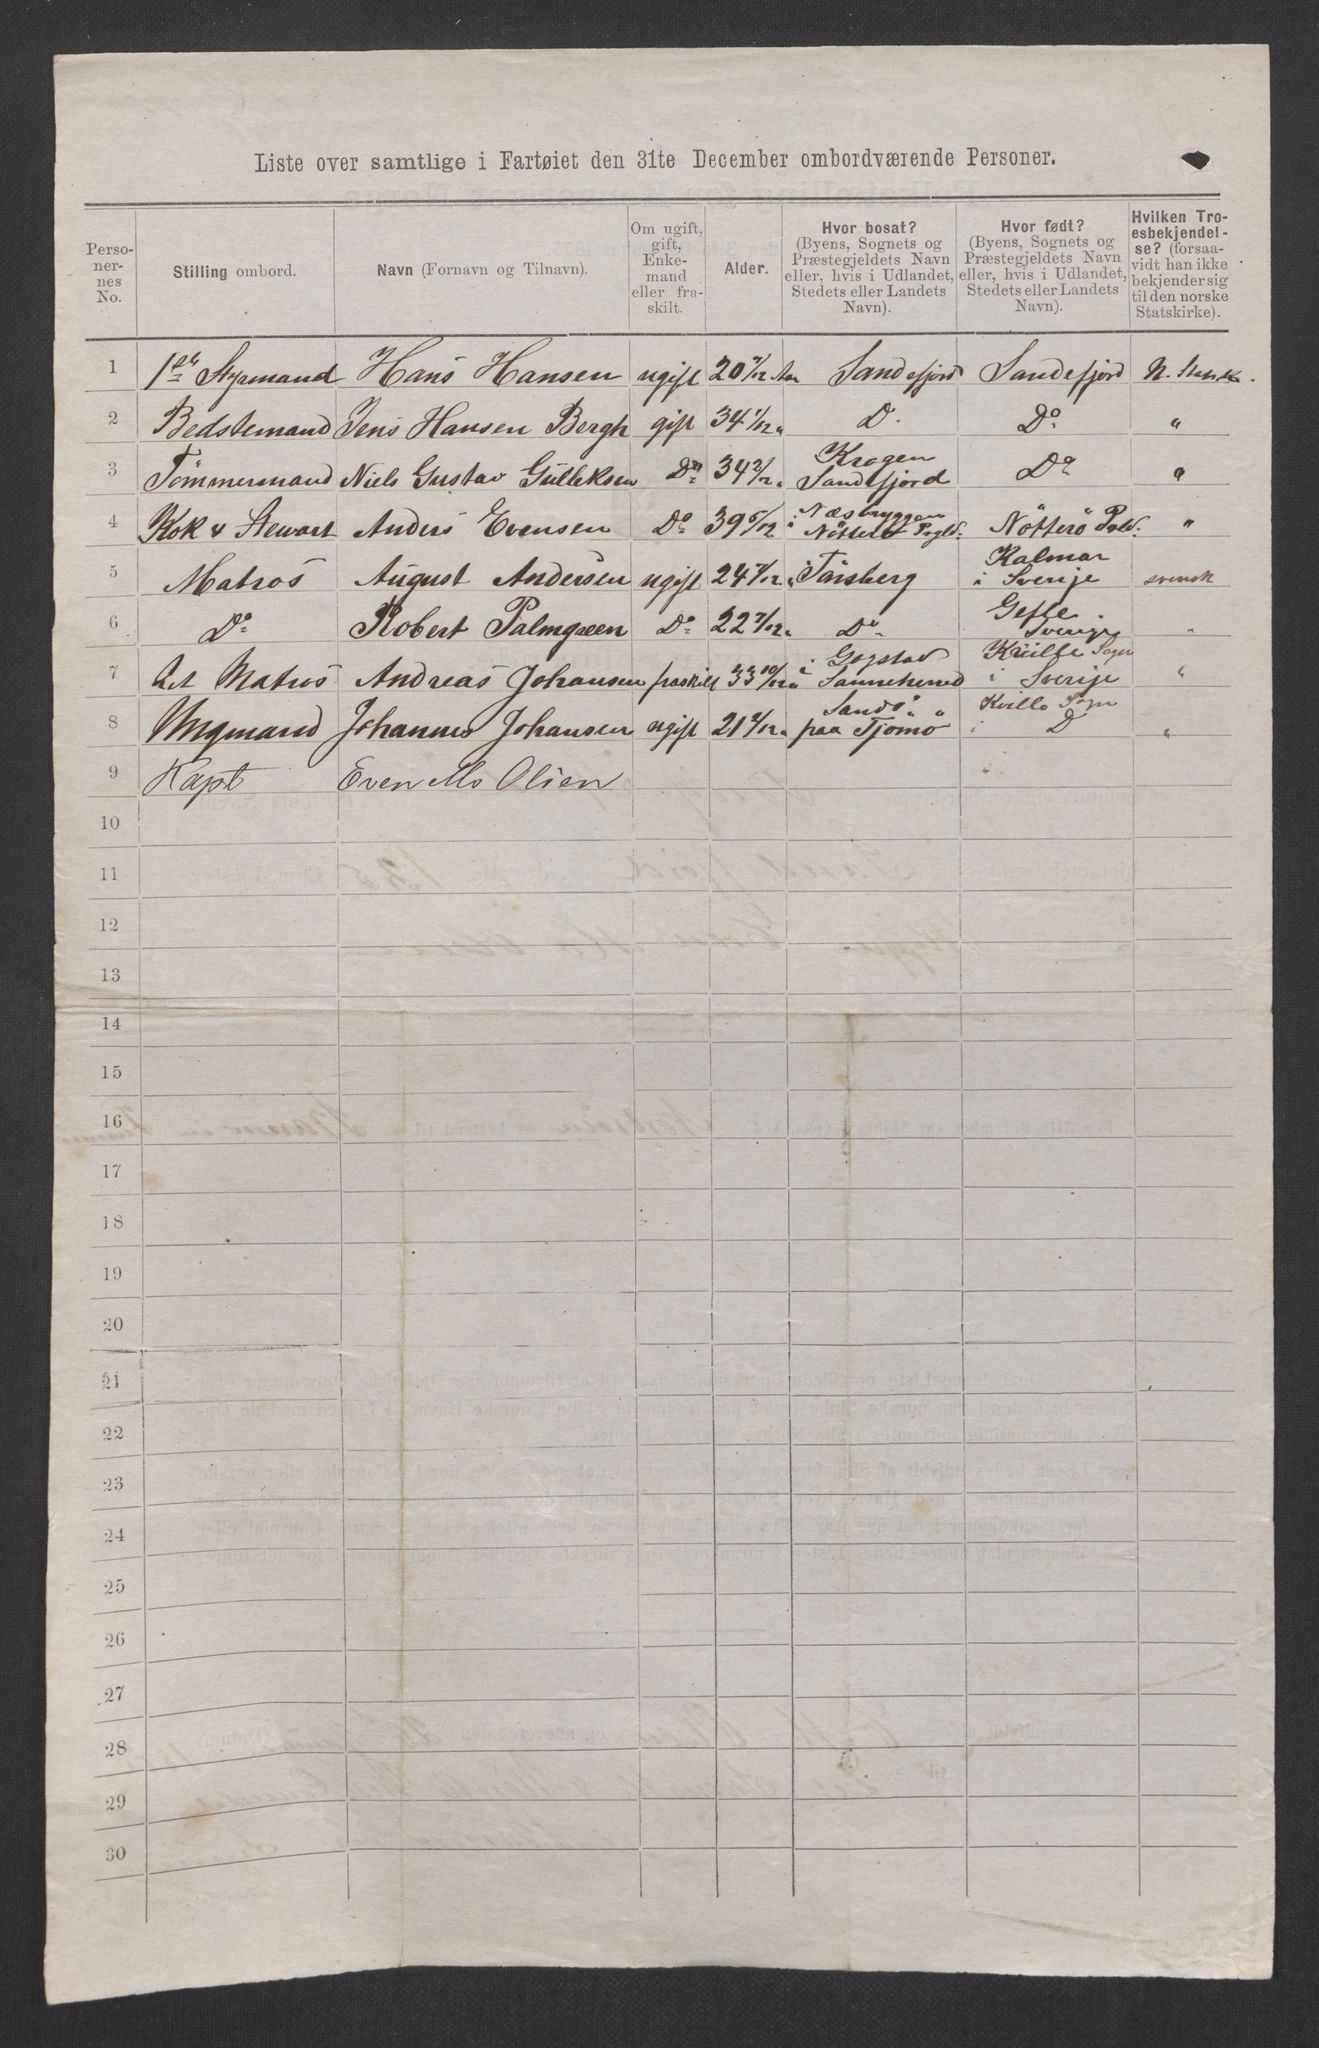 Liste over samtlige i Fartøiet den 31te December ombordværende Personer.
Perso-
ner-
nes
No.
Stilling ombord.
Navn (Fornavn og Tilnavn).
Om ugift,
gift,
Enke-
mand
eller fra-
skilt.
Alder.
Hvor bosat?
(Byens, Sognets og
Præstegjeldets Navn
eller, hvis i Udlandet,
Stedets eller Landets
Navn).
Hvor født?
(Byens, Sognets og
Præstegjeldets Navn
eller, hvis i Udlandet,
Stedets eller Landets
Navn).
Hvilken Tro-
esbekjendel-
se? (forsaa-
vidt han ikke
bekjender sig
til den norske
Statskirke).
1 Styrmand Hans Hansen ugift 20 Sandefjord Sandefjord N. Statsk.
2 Bedstemand Jens Hansen Bergh gift 34 D. Do "
3 Tömmermand Niels Gustav Gulleksen Do 34 Krogen Sandefjord Do "
4 Kok & Stewart Anders Evensen Do 39 6/12 i Næsbryggen Nötterö Pgld. Nötterö "
5 Matros August Andersen ugift 24 i Tönsberg Kalmar i Sverije svensk
6 Do Robert Palmgreen Do 22 Do Gefle Sverije "
7 Let Matros Andreas Johansen fraskilt 33 10/12 i Gogstad Sannehered Sogn i Sverije "
8 Ungmand Johannes Johansen ugift 21 Sandö paa Tjömö Kville Sogn i D "
9 Kapt Even Mo Olsen
10
11
12
13
14
15
16
17
18
19
20
21
22
23
24
25
26
27
28
29
30